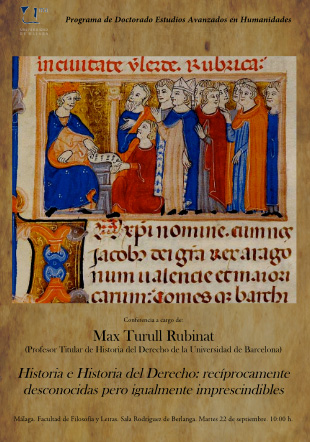 Programa de Doctorado Estudios Avanzados en Humanidades
in civitate vlerde. Rubrica.
xpi nomine. cum nos
Jacobus dei gra rex arago
num ualencie et maiori
carum. comes qz barchi
Conferencia a cargo de:
Max Turull Rubinat
(Profesor Titular de Historia del Derecho de la Universidad de Barcelona)
Historia e Historia del Derecho: recíprocamente
desconocidas pero igualmente imprescindibles
Málaga. Facultad de Filosofía y Letras. Sala Rodríguez de Berlanga. Martes 22 de septiembre 10:00 h.